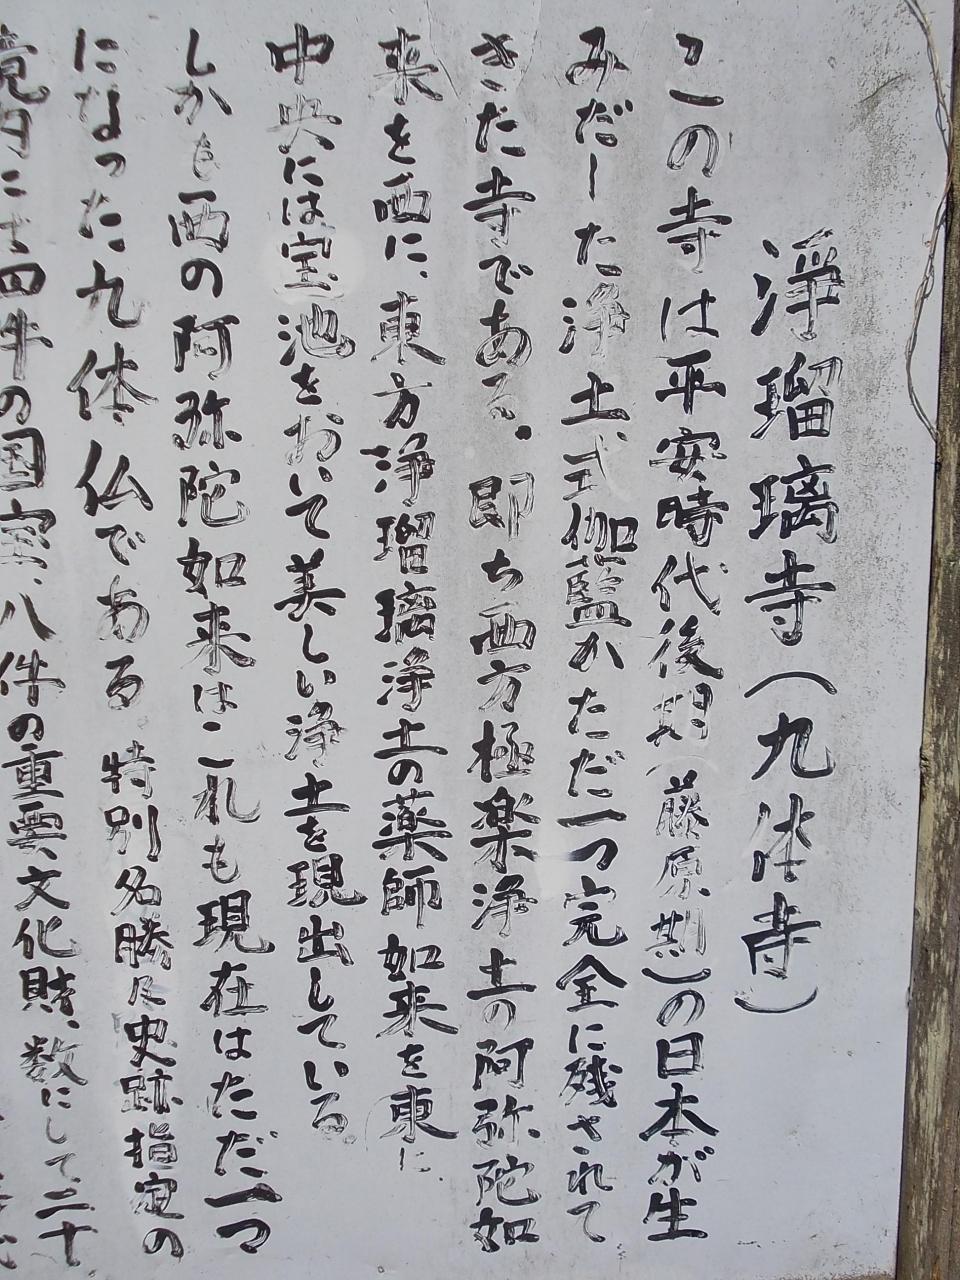 浄瑠璃寺(九体寺)
この寺は平安時代後期(藤原期)の日本が生
みだした浄土式伽藍がただ一つ完全に残されて
きた寺である。即ち西方極楽浄土の阿弥陀如
来を西に、東方浄瑠璃浄土の薬師如来を東に
中央には宝池をおいて美しい浄土を現出している。
しかも西の阿弥陀如来はこれも現在はただ一つ
になった九体仏である。特別名勝及史跡指定の
境内には四件の国宝、八件の重要文化財、数にして二十